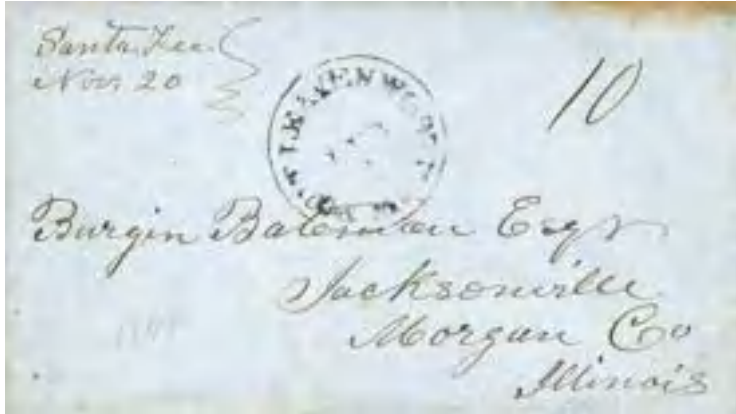 Santa Fee
Nov 20
10
FT LEAVENWORTH
Burgin Bateman Esqr
Jacksonville
Morgan Co
Illinois